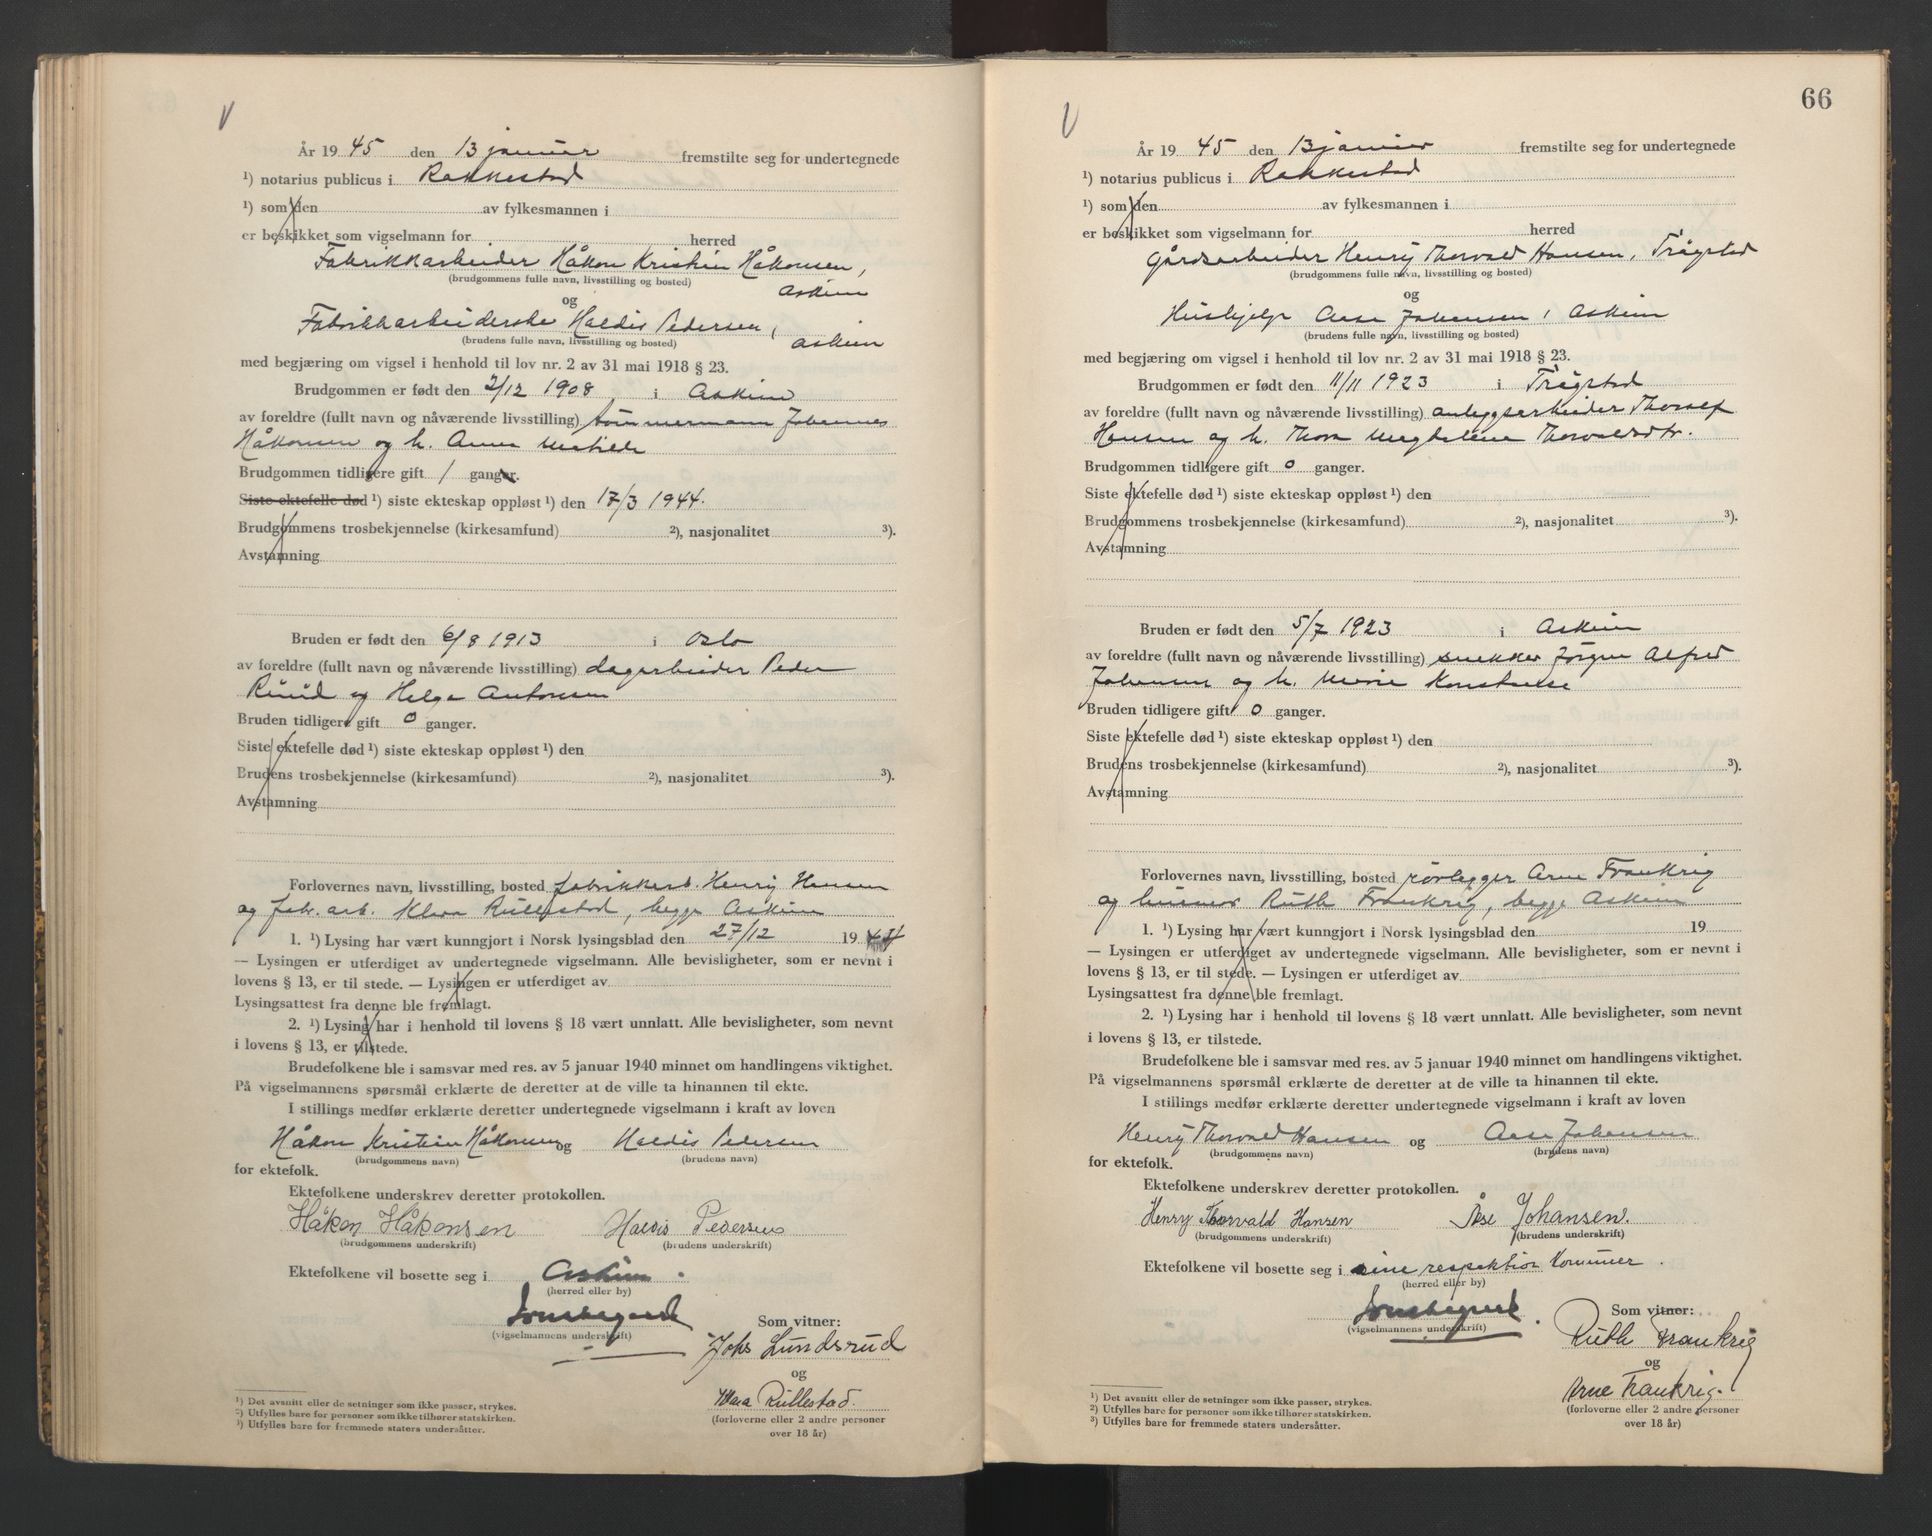 År 19 45 den 13 januar fremstilte seg for undertegnede
¹) notarius publicus i Rakkestad
¹) som den av fylkesmannen i
er beskikket som vigselmann for herred
Fabrikkarbeider Håkon Kristian Håkonsen,
(brudgommens fulle navn, livsstilling og bosted)
Askim
og
Fabrikkarbeiderske Haldis Pedersen,
(brudens fulle navn, livsstilling og bosted)
Askim
med begjæring om vigsel i henhold til lov nr. 2 av 31 mai 1918 § 23.
Brudgommen er født den 2/12 1908 i Askim
av foreldre (fullt navn og nåværende livsstilling) tømmermann Johannes
Håkonsen og h. Anna Matilde
Brudgommen tidligere gift 1 ganger.
Siste ektefelle død ¹) siste ekteskap oppløst ¹) den 17/3 1944.
Brudgommens trosbekjennelse (kirkesamfund) ²), nasjonalitet ³).
Avstamning
Bruden er født den 6/8 1913 i Oslo
av foreldre (fullt navn og nåværende livsstilling) dagarbeider Peder
Ruud og Helga Antonsen
Bruden tidligere gift 0 ganger.
Siste ektefelle død ¹) siste ekteskap oppløst ¹) den
Brudens trosbekjennelse (kirkesamfund) ²), nasjonalitet ³).
Avstamning
Forlovernes navn, livsstilling, bosted fabrikkarb. Henry Hansen
og fabr. arb. Klara Rullestad, begge Askim
1. ¹) Lysing har vært kunngjort i Norsk lysingsblad den 27/12 19 44
— Lysingen er utferdiget av undertegnede vigselmann. Alle bevisligheter, som er nevnt i
lovens § 13, er til stede. — Lysingen er utferdiget av
Lysingsattest fra denne ble fremlagt.
2. ¹) Lysing har i henhold til lovens § 18 vært unnlatt. Alle bevisligheter, som nevnt
i lovens § 13, er tilstede.
Brudefolkene ble i samsvar med res. av 5 januar 1940 minnet om handlingens viktighet.
På vigselmannens spørsmål erklærte de deretter at de ville ta hinannen til ekte.
I stillings medfør erklærte deretter undertegnede vigselmann i kraft av loven
Håkon Kristian Håkonsen og Haldis Pedersen
(brudgommens navn) (brudens navn)
for ektefolk.
Ektefolkene underskrev deretter protokollen.
Håkon Håkonsen Haldis Pedersen
(brudgommens underskrift) (brudens underskrift)
Ektefolkene vil bosette seg i Askim.
(herred eller by)
(vigselmannens underskrift)
Som vitner:
Johs Lundsrud
og
Klara Rullestad.
(forloverne eller 2 andre personer
over 18 år)
¹) Det avsnitt eller de setninger som ikke passer, strykes.
²) Utfylles bare for personer som ikke tilhører statskirken.
³) Utfylles bare for fremmede staters undersåtter.
66
År 19 45 den 13 januar fremstilte seg for undertegnede
¹) notarius publicus i Rakkestad
¹) som den av fylkesmannen i
er beskikket som vigselmann for herred
Gårdsarbeider Henry Thorvald Hansen, Trøgstad
(brudgommens fulle navn, livsstilling og bosted)
og
Hushjelp Aase Johansen, Askim
(brudens fulle navn, livsstilling og bosted)
med begjæring om vigsel i henhold til lov nr. 2 av 31 mai 1918 § 23.
Brudgommen er født den 11/11 1923 i Trøgstad
av foreldre (fullt navn og nåværende livsstilling) anleggsarbeider Thoralf
Hansen og h. Thora Magdalene Thorvaldsdtr.
Brudgommen tidligere gift 0 ganger.
Siste ektefelle død ¹) siste ekteskap oppløst ¹) den
Brudgommens trosbekjennelse (kirkesamfund) ²), nasjonalitet ³).
Avstamning
Bruden er født den 5/7 1923 i Askim
av foreldre (fullt navn og nåværende livsstilling) snekker Jørgen Alfred
Johansen og h. Marie Konstanse
Bruden tidligere gift 0 ganger.
Siste ektefelle død ¹) siste ekteskap oppløst ¹) den
Brudens trosbekjennelse (kirkesamfund) ²), nasjonalitet ³).
Avstamning
Forlovernes navn, livsstilling, bosted rørlegger Arne Frankrig
og husmor Ruth Frankrig, begge Askim
1. ¹) Lysing har vært kunngjort i Norsk lysingsblad den 19
— Lysingen er utferdiget av undertegnede vigselmann. Alle bevisligheter, som er nevnt i
lovens § 13, er til stede. — Lysingen er utferdiget av
Lysingsattest fra denne ble fremlagt.
2. ¹) Lysing har i henhold til lovens § 18 vært unnlatt. Alle bevisligheter, som nevnt
i lovens § 13, er tilstede.
Brudefolkene ble i samsvar med res. av 5 januar 1940 minnet om handlingens viktighet.
På vigselmannens spørsmål erklærte de deretter at de ville ta hinannen til ekte.
I stillings medfør erklærte deretter undertegnede vigselmann i kraft av loven
Henry Thorvald Hansen og Aase Johansen
(brudgommens navn) (brudens navn)
for ektefolk.
Ektefolkene underskrev deretter protokollen.
Henry Thorvald Hansen Åse Johansen.
(brudgommens underskrift) (brudens underskrift)
Ektefolkene vil bosette seg i sine respektive kommuner.
(herred eller by)
(vigselmannens underskrift)
Som vitner:
Ruth Frankrig
og
Arne Frankrig.
(forloverne eller 2 andre personer
over 18 år)
¹) Det avsnitt eller de setninger som ikke passer, strykes.
²) Utfylles bare for personer som ikke tilhører statskirken.
³) Utfylles bare for fremmede staters undersåtter.